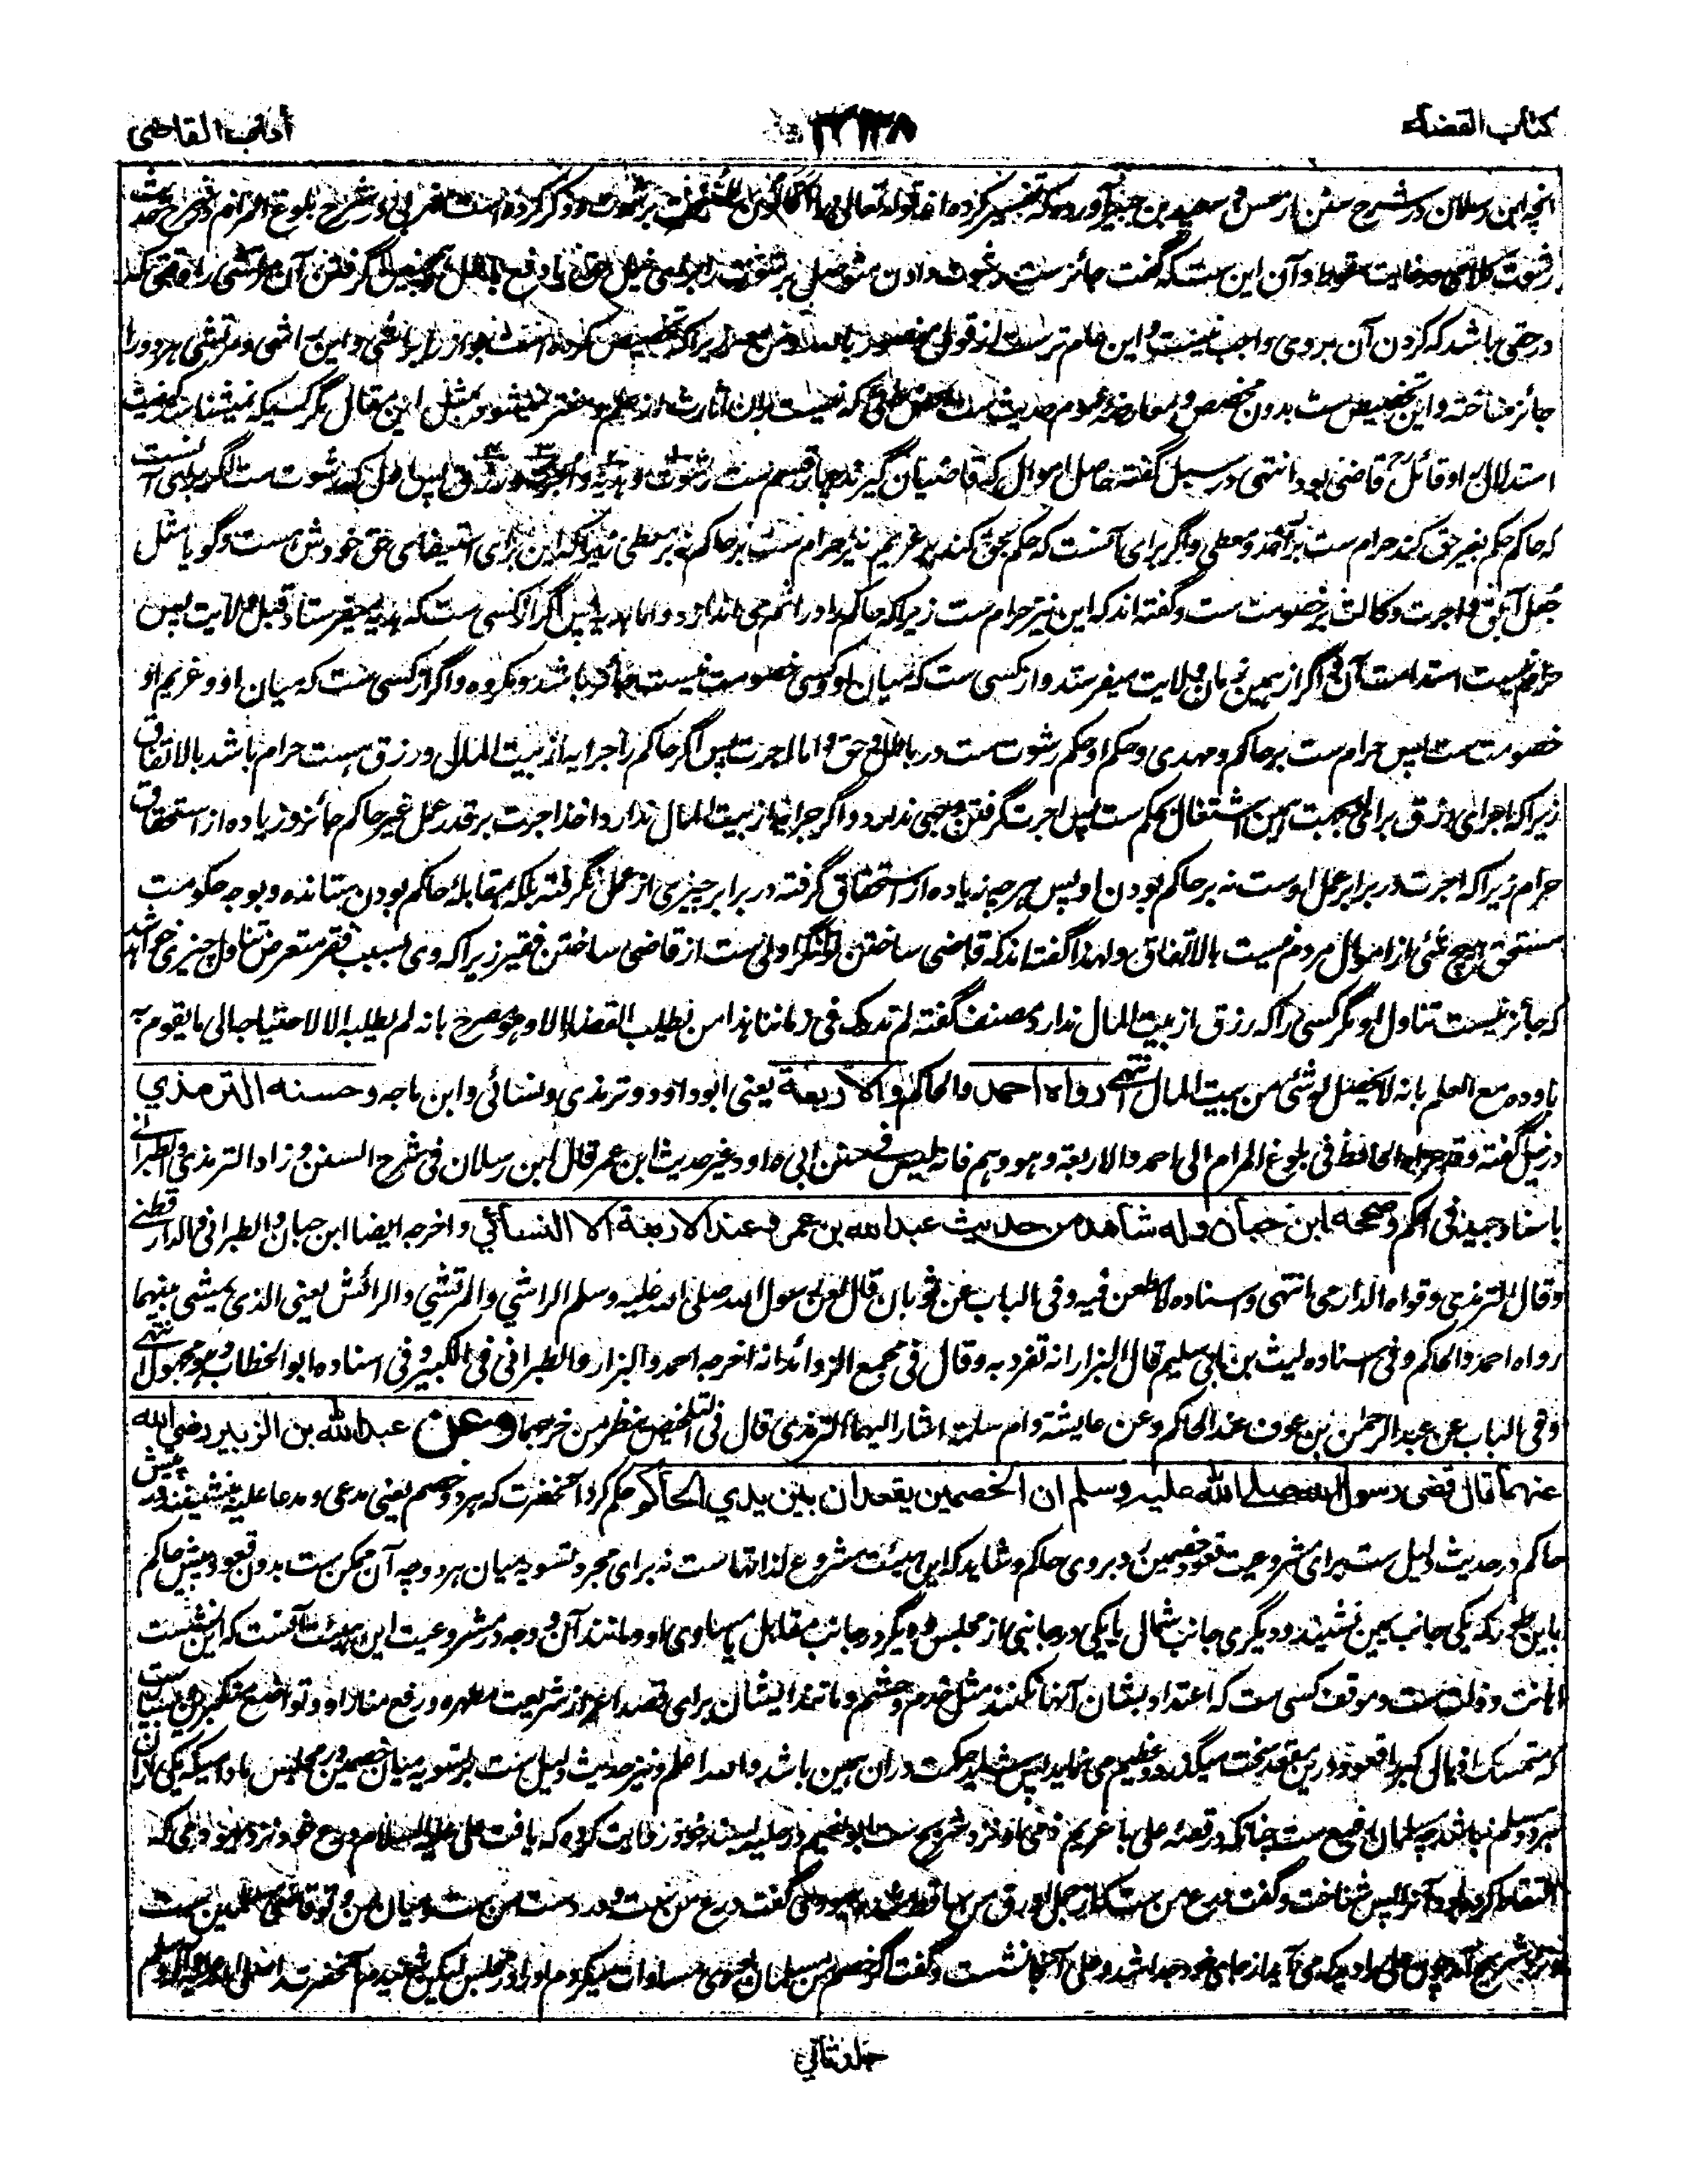 کتاب القضاء
آداب القاضی
انچه ابن رسلان در شرح سنن از حسن و سعید بن جبیر آورده که تفسیر کرده اند قوله تعالی برشوت و ذکر کرده است مغربی در شرح بلوغ المرام در شرح حدیث
رشوت کلامی و آن این ست که گفت جائز ست رشوت دادن گرفتن آن مرتشی را
در حقی باشد که کردن آن بر وی واجب نیست و این عام ترست از قول منصور باللہ زیراکه تخصیص کرده است جواز را براشی و این راشی و مرتشی هر دو را
جائز ساخته و این تخصیص ست بدون مخصص و معارضه عموم حدیث ست که نیست بران اثارت از علم و مغتر نمیشود بمثل این مقال مگر کسیکه نمیشناسد کیفیت
استدلال و قائل او قاضی بود انتهی در سبل گفته حاصل اموال که قاضیان گیرند چهار قسم ست رشوت و هدیه و اجرت و رزق پس اول که رشوت ست اگر برای آنست
که حاکم حکم بغیر حق کند حرام ست بر آخذ و معطی و اگر برای آنست که حکم بحق کند بر غریم نیز حرام ست بر حاکم نه بر معطی زیراکه این برای استیفای حق خودش ست و گویا مثل
جعل آبق و اجرت وکالت بر خصومت ست و گفته اند که این نیز حرام ست زیراکه حاکم را در اثم می اندازد و اما هدیه پس اگر از کسی ست که هدیه میفرستاد قبل ولایت پس
حرام نیست استدامت آن و اگر از همین زمان ولایت میفرستد و از کسی ست که میان او و کسی خصومت نیست جائز باشد و مکروه و اگر از کسی ست که میان او و غریم او
خصومت ست پس حرام ست بر حاکم و مهدی و حکم او حکم رشوت ست در باطل و حق و اما اجرت پس اگر حاکم را جرایه از بیت المال و رزق هست حرام باشد بالاتفاق
زیراکه اجرای رزق برای وی بجهت همین اشتغال بحکم ست پس اجرت گرفتن وجهی ندارد و اگر جرایه از بیت المال ندارد اخذ اجرت بر قدر عمل غیر حاکم جائز و زیاده از استحقاق
حرام زیراکه اجرت در برابر عمل اوست نه بر حاکم بودن او پس هرچه زیاده از استحقاق گرفته در برابر چیزی از عمل نگرفته بلکه بمقابله حاکم بودن ستانده و بوجه حکومت
مستحق هیچ شئی از اموال مردم نیست بالاتفاق و لهذا گفته اند که قاضی ساختن تونگر اولی ست از قاضی ساختن فقیر زیراکه وی بسبب فقر متعرض تناول چیزی خواهد شد
که جائز نیست تناول او مگر کسی را که رزق از بیت المال ندارد مصنف گفته لم ندرک فی زماننا هذا من یطلب القضاء الا وهو مصرح بانه لم یطلبه الا لاحتیاجه الی ما یقوم به
باوده مع العلم بانه لا یحصل له شئ من بیت المال انتهی رواه احمد والحاکم والاربعة یعنی ابوداود و ترمذی و نسائی و ابن ماجه وحسنه الترمذي
در نیل گفته وقد عزاه الحافظ فی بلوغ المرام الی احمد والاربعة وهو وهم فانه لیس فی سنن ابی داود غیر حدیث ابن عمر قال ابن رسلان فی شرح السنن و زاد الترمذی والطبرانے
باسناد جید فی الحکم وصححه ابن حبان وله شاهد من حدیث عبدالله بن عمرو عند الاربعة الا النسائي واخرجه ایضا ابن حبان والطبرانی والدارقطنے
وقال الترمذی وقواه الدارمی انتهی واسناده لا مطعن فیه وفی الباب عن ثوبان قال لعن رسول الله صلی الله علیه وسلم الراشي والمرتشي والرائش یعنی الذی یمشی بینهما
رواه احمد والحاکم وفی اسناده لیث بن ابی سلیم قال البزار انه تفرد به وقال فی مجمع الزوائد انه اخرجه احمد والبزار والطبرانی فی الکبیر وفی اسناده ابو الخطاب وهو مجهول انتهے
وفی الباب عن عبد الرحمن بن عوف عند الحاکم وعن عایشة وام سلمة اشار الیهما الترمذی قال فی التلخیص ینظر من خرجهما وعن عبدالله بن الزبیر رضی الله
عنهما قال قضى رسول الله صلے الله علیه وسلم ان الخصمین یقعدان بین یدي الحاکم حکم کرد آنحضرت که هر دو خصم یعنی مدعی و مدعا علیه بنشینند پیش
حاکم در حدیث دلیل ست برای مشروعیت قعود خصمین روبروی حاکم و شاید که این هیئت مشروع لذاتها است نه برای مجرد تسویه میان هر دو چه آن ممکن ست بدون قعود پیش حاکم
باین طور که یکی جانب یمین نشیند و دیگری جانب شمال یا یکی در جانبی از مجلس و دیگر در جانب مقابل یا مساوی او و مانند آن و وجه در مشروعیت این هیئت آنست که این نشست
اهانت و ذلت ست و موقف کسی ست که اعتداد بشان آنها نکنند مثل خدم و حشم و مانند ایشان برای قصد اعزاز شریعت مطهره و رفع منار او و تواضع متکبرین ست
که متمسک اذیال کبر را قعود درین مقعد سخت میگذرد و عظیم می نماید پس شاید حکمت دران همین باشد والله اعلم و نیز حدیث دلیل ست بر تسویه میان خصمین در مجلس مادامیکه یکی ازان
هر دو مسلم نباشد چه مسلمان ارفع ست چنانکه در قصه علی با غریم ذمی او نزد شریح ست ابو نعیم در حلیه بسند خود روایت کرده که یافت علی علیه السلام درع خود نزد یهودی که
التقاط کرده بود آنرا پس شناخت و گفت درع من ست که از جمل اورق من ساقط شد یهودی گفت درع من ست و در دست من ست و میان من و تو قاضی مسلمین ست
نزد شریح آمد چون علی را دید که می آید از جای خود جدا شد و علی آنجا نشست و گفت اگر خصم من مسلمان بودی مساوات میکردم او را در مجلس لیکن شنیدم آنحضرت را صلی الله علیه وآله وسلم
جلد ثانی